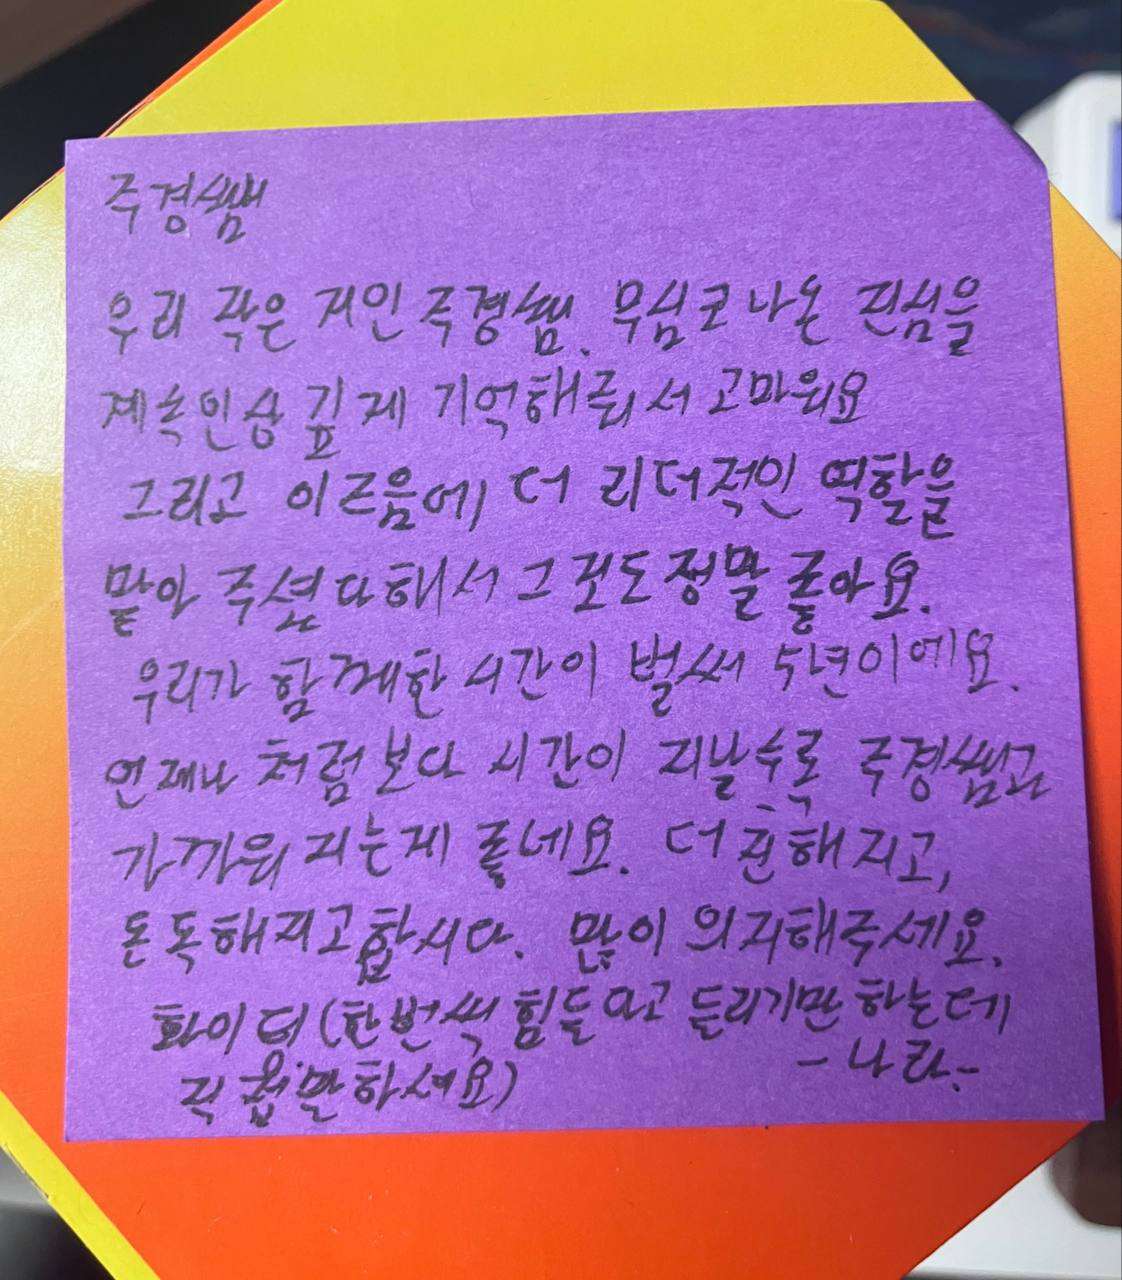 주경쌤
우리 작은 거인 주경쌤. 무심코 나온 진심을
계속 인상 깊게 기억해줘서 고마워요
그리고 이즈음에 더 리더적인 역할을
맡아 주셨다 해서 그것도 정말 좋아요.
우리가 함께한 시간이 벌써 5년이에요.
언제나 처럼보다 시간이 지날수록 주경쌤과
가까워 지는게 좋네요. 더 친해지고,
돈독해지고 합시다. 많이 의지해주세요.
화이팅 (한번씩 힘들다고 들리기만 하는데
직접 말하셔요) -나라-